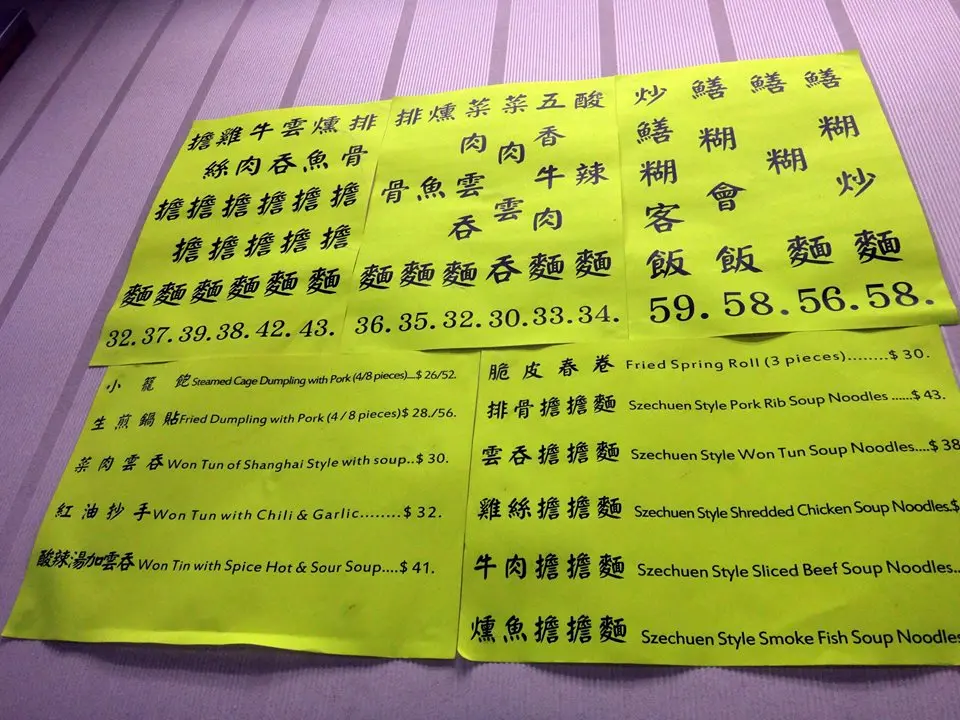 排骨擔擔麵 43.
燻魚擔擔麵 42.
雲吞擔擔麵 38.
牛肉擔擔麵 39.
雞絲擔擔麵 37.
擔擔麵 32.
酸辣麵 34.
五香牛肉麵 33.
菜肉雲吞 30.
菜肉雲吞麵 32.
燻魚麵 35.
排骨麵 36.
鱔糊炒麵 58.
鱔糊麵 56.
鱔糊會飯 58.
炒鱔糊客飯 59.
小籠飽 Steamed Cage Dumpling with Pork (4/8 pieces)....$ 26/52.
生煎鍋貼 Fried Dumpling with Pork (4 / 8 pieces)$ 28./56.
菜肉雲吞 Won Tun of Shanghai Style with soup..$ 30.
紅油抄手 Won Tun with Chili & Garlic........$ 32.
酸辣湯加雲吞 Won Tin with Spice Hot & Sour Soup....$ 41.
脆皮春卷 Fried Spring Roll (3 pieces)........$ 30.
排骨擔擔麵 Szechuen Style Pork Rib Soup Noodles ......$ 43.
雲吞擔擔麵 Szechuen Style Won Tun Soup Noodles....$ 38
雞絲擔擔麵 Szechuen Style Shredded Chicken Soup Noodles.$
牛肉擔擔麵 Szechuen Style Sliced Beef Soup Noodles..
燻魚擔擔麵 Szechuen Style Smoke Fish Soup Noodles